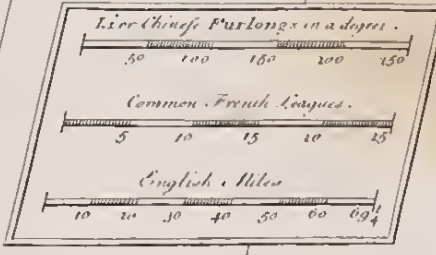 Lis or Chinese Furlongs in a degree.
50 100 150 200 250
Common French Leagues.
5 10 15 20 25
English Miles
10 20 30 40 50 60 69 1/4